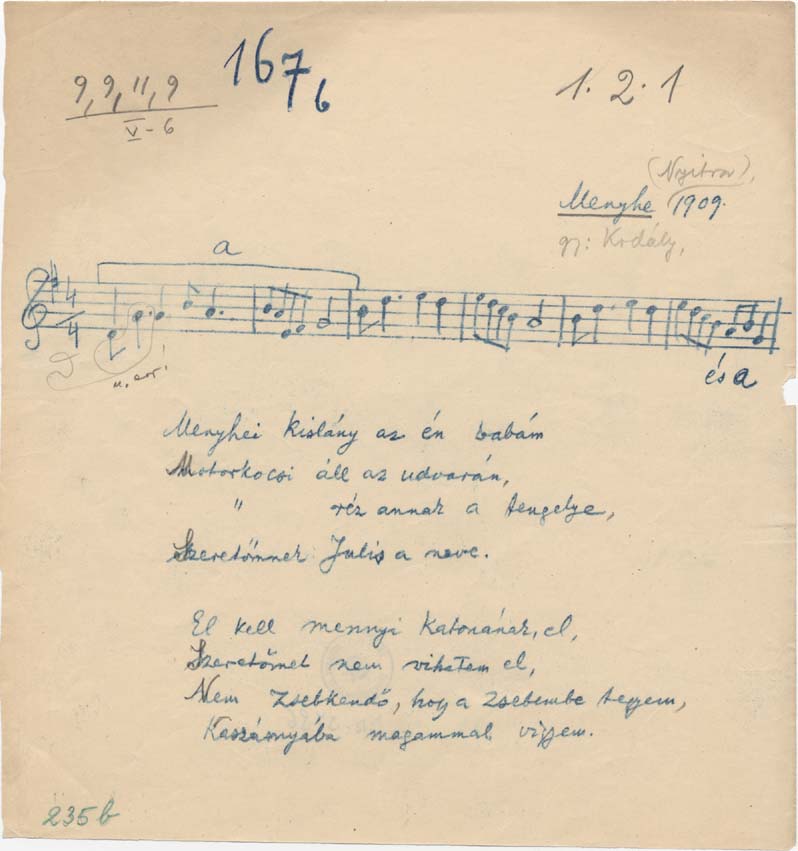 9, 9, 11, 9
V-6
167
6
1. 2. 1
(Nyitra),
Menyhe 1909.
gy: Kodály,
a
4
4
és a
Menyhei kislány az én babám
Motorkocsi áll az udvarán,
" réz annak a tengelye,
Szeretőmnek Julis a neve.
El kell mennyi katonának, el,
Szeretőmet nem vihetem el,
Nem zsebkendő, hogy a zsebembe tegyem,
Kaszárnyába magammal vigyem.
235b